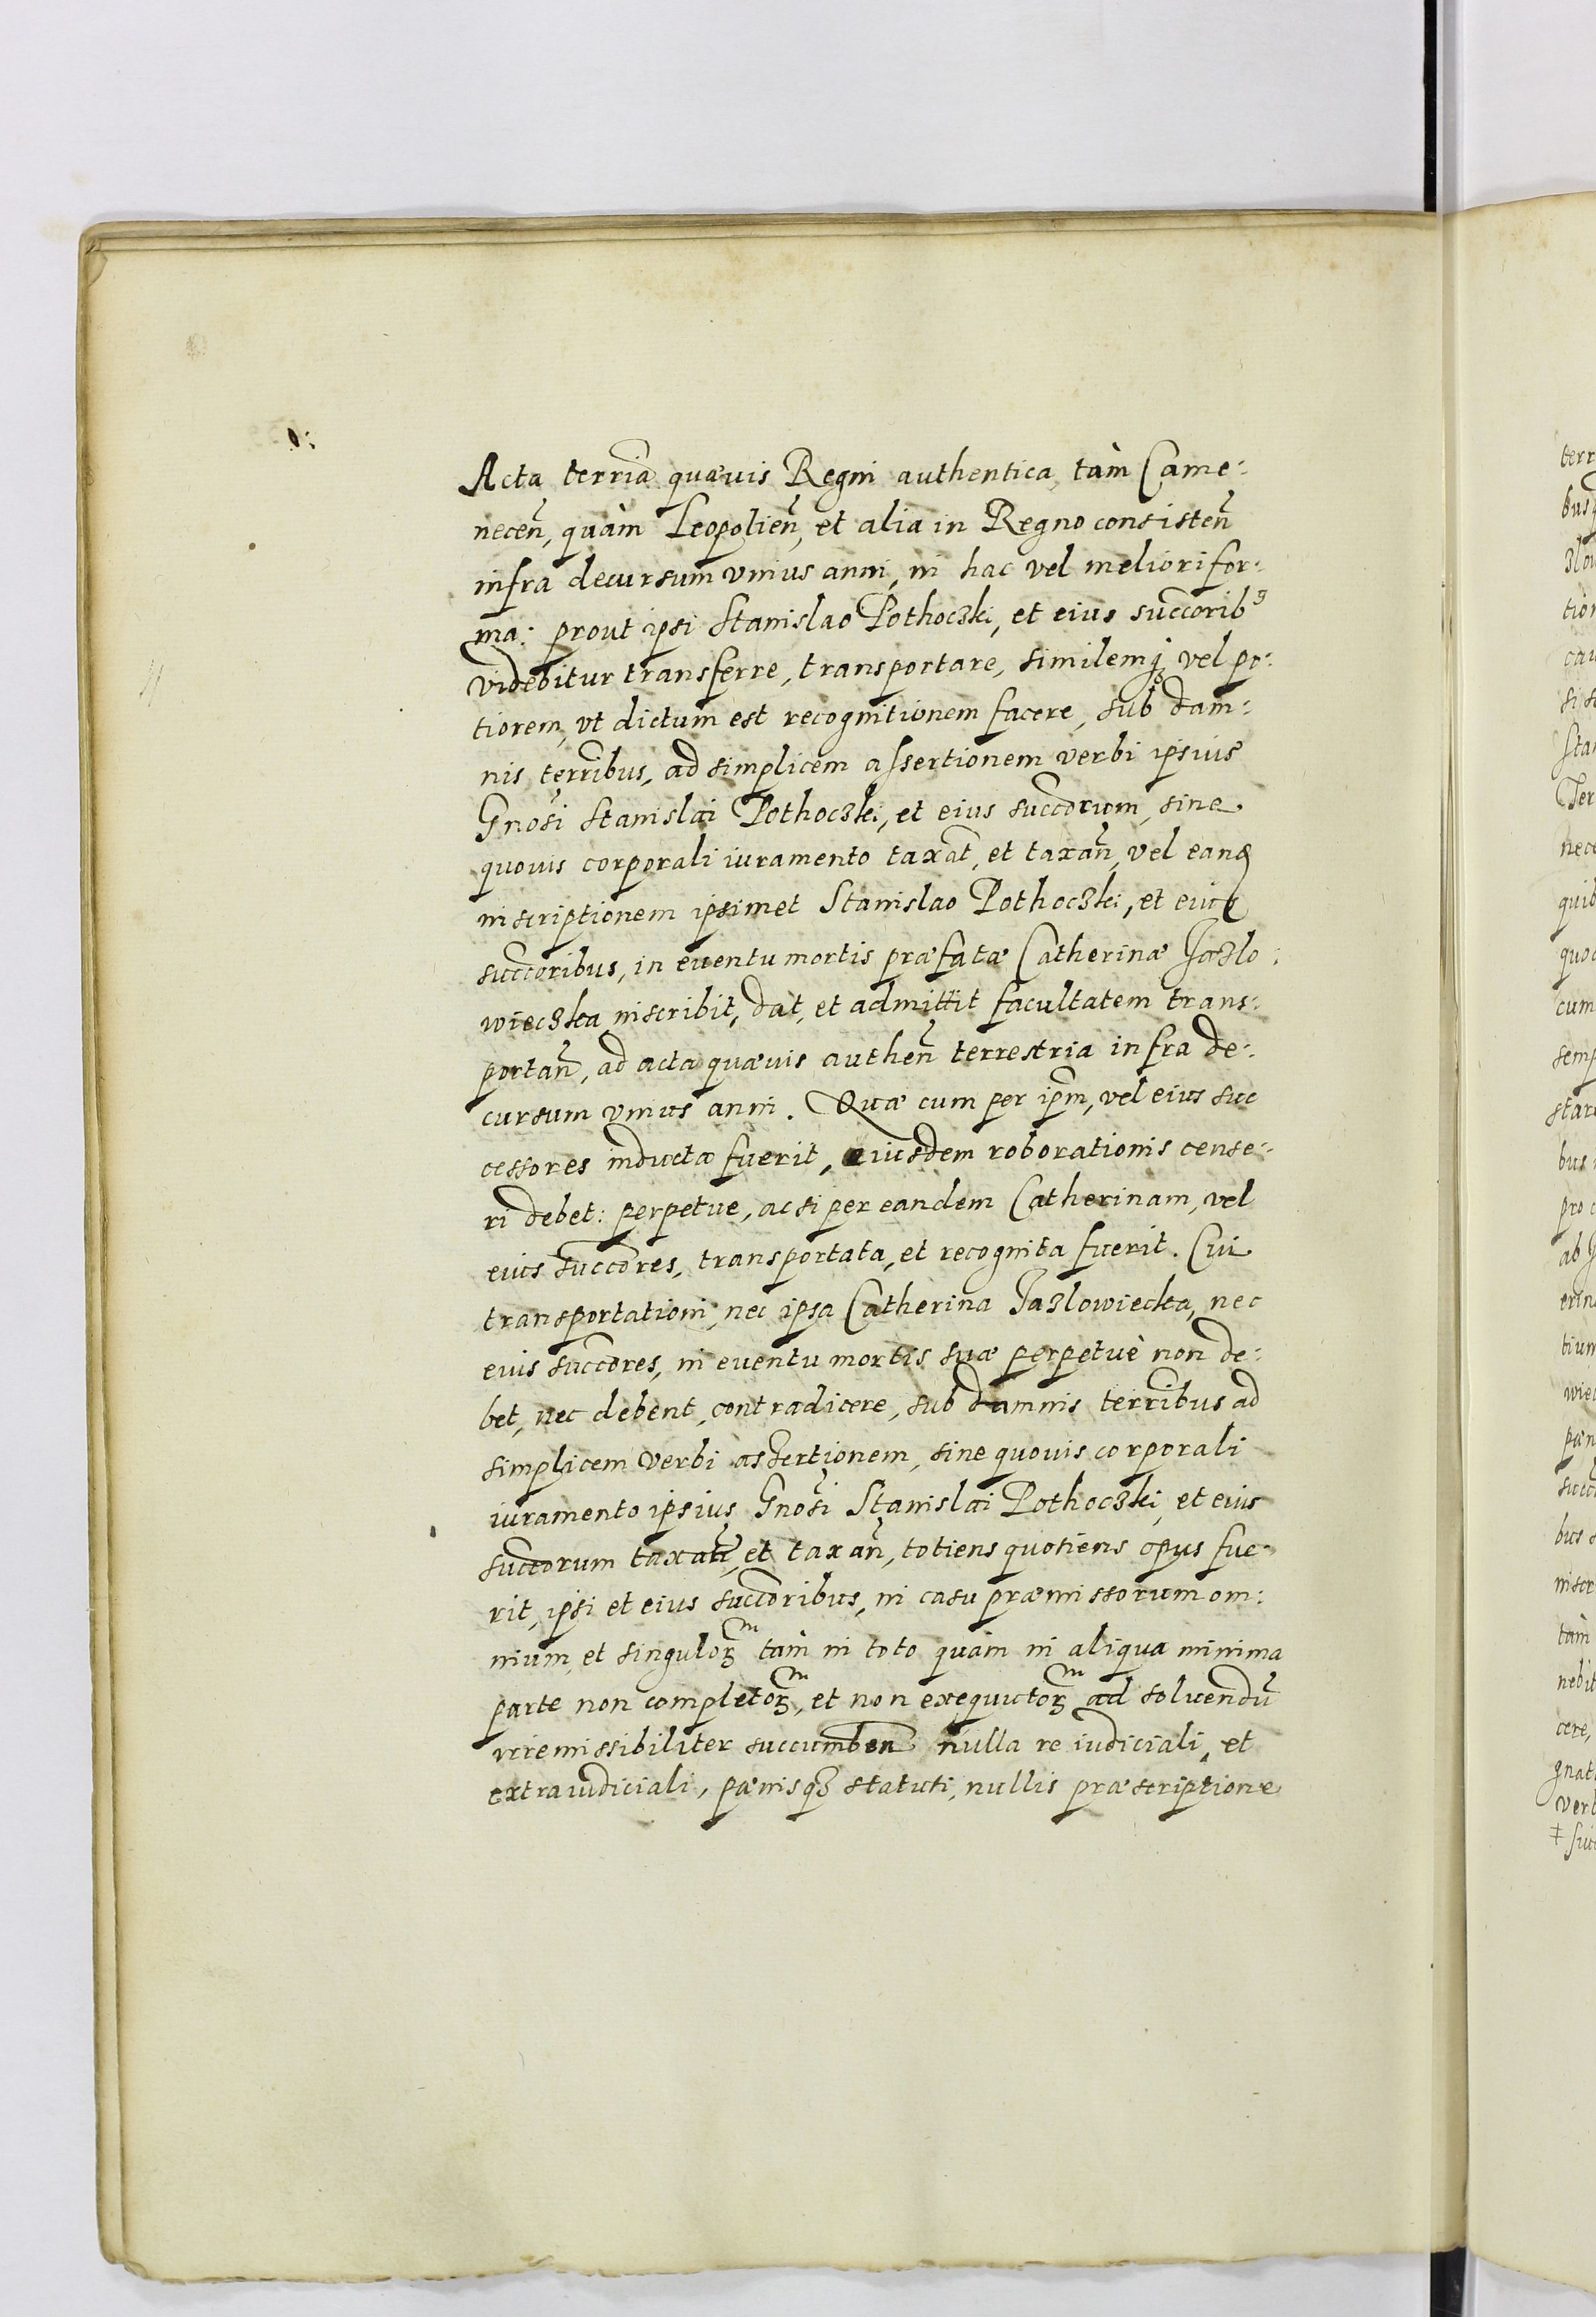 Acta terria quævis Regni authentica, tàm Came:
necen̄, quàm Leopolien̄, et alia in Regno consisten̄
infra decursum vnius anni, in hac vel meliori for:
ma: prout ipsi Stanislao Pothoczki, et eius succorib⁹
videbitur transferre, transportare, similemq; vel po:
tiorem, vt dictum est recognitionem facere, sub dam:
nis terribus, ad simplicem assertionem verbi ipsius
Gnosi Stanislai Pothoczki, et eius succorum, sine
quovis corporali iuramento taxat̄, et taxan̄, vel eand
inscriptionem ipsimet Stanislao Pothoczki, et eius
succoribus, in eventu mortis præfatæ Catherinæ Jazlo:
wieczka inscribit, dat, et admittit facultatem trans:
portan̄, ad acta quævis authen̄ terrestria infra de:
cursum vnius anni. Quæ cum per ipm̄, vel eius suc
cessores inductæ fuerit, eiusdem roborationis cense:
ri debet: perpetue, ac si per eandem Catherinam, vel
eius succores, transportata, et recognita fuerit. Cui
transportationi, nec ipsa Catherina Jazlowiecka, nec
eius succores, in eventu mortis suæ perpetuè non de:
bet, nec debent, contradicere, sub damnis terribus ad
simplicem verbi assertionem, sine quovis corporali
iuramento ipsius Gnosi Stanislai Pothoczki, et eius
succorum taxat̄, et taxan̄, totiens quotiens opus fue:
rit, ipsi et eius succoribus, in casu præmissorum om:
nium, et singuloꝝ tàm in toto quàm in aliqua minima
parte non completoꝝ, et non exequutoꝝ ad solvendū
irremissibiliter succumben̄ nulla re iudiciali, et
extraiudiciali, pænisqꝫ statuti, nullis præscriptione